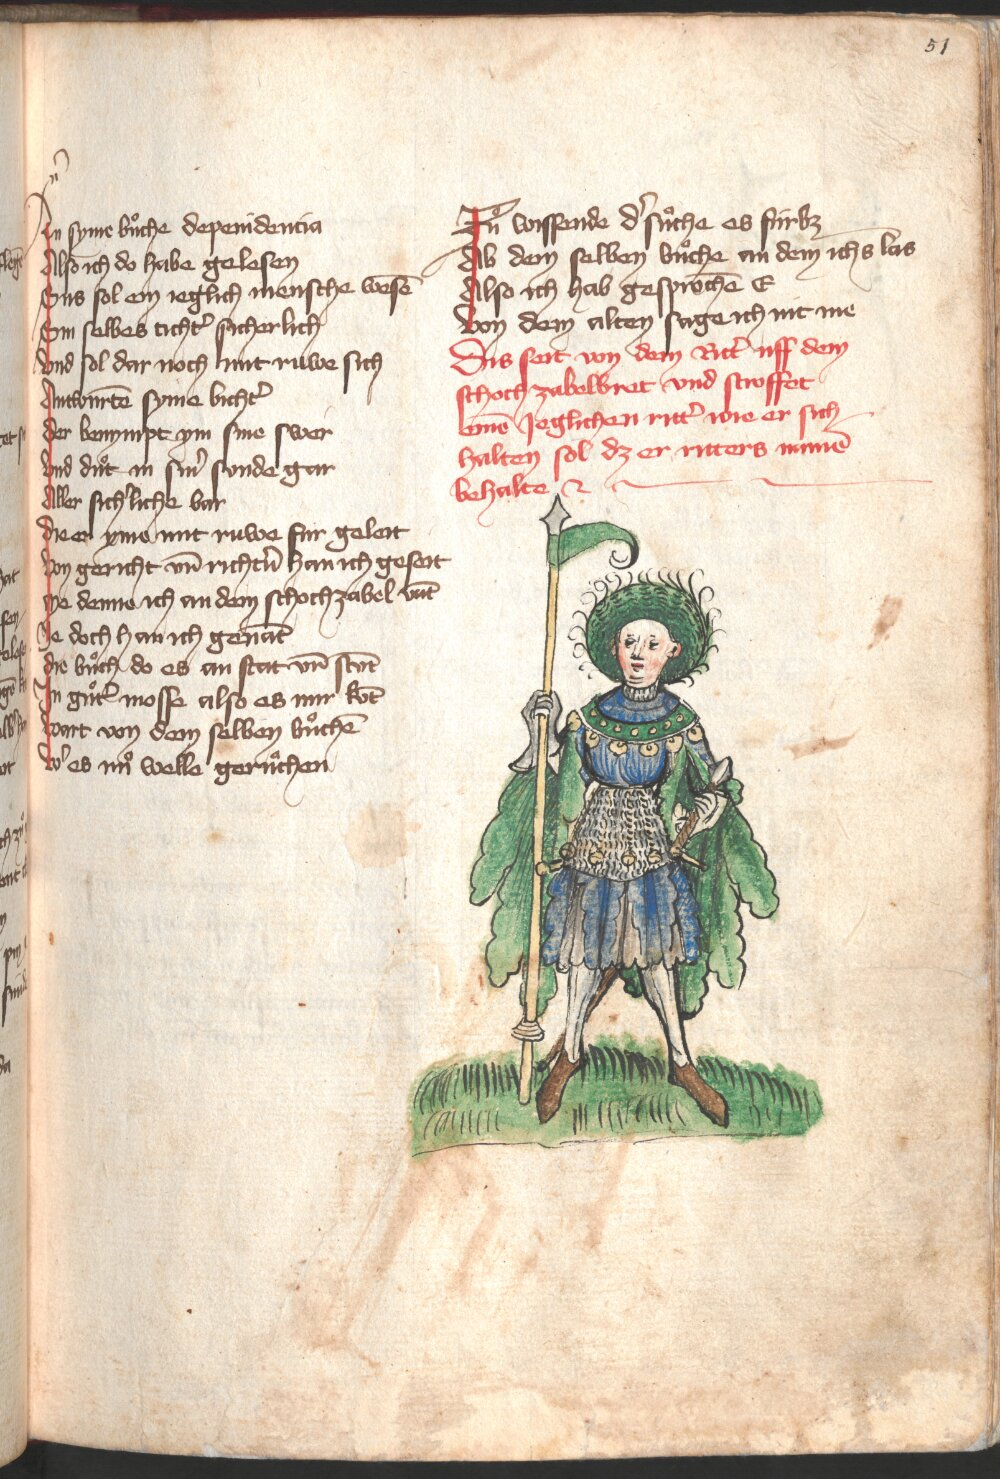 51
In syme bůche depenidencia
Also ich do habe gelesen
Sus sol ein ieglich mensche wesē
Sin selbes ticht' sicherlich
Vnd sol dar noch mit ruwe sich
Antwurtē syme bicht'
Der benympt ym sine swer
Vnd důt in sin' sunde gar
Aller sich'liche bar
Die er yme mit ruwe für geleit
Von gericht vn̄ richt'n han ich geseit
Me denne ich an dem schochzabel vāt
Je doch han ich genāt
Die bůch do es an stat vn̄ stāt
In gůt' mosse also es mir kōt
Wart von dem selben bůchē
W'es nů welle gerůchen
Zů wissende d' sůche es fürbz
Ab dem selben bůche an dem ichs las
Also ich hab gesprochē E
Von dem alten sage ich nit me
Dis seit von dem Ritt' uff dem
schochzabelbret vnd stroffet
einē Jeglichen ritt' wie er sich
halten sol dz er ritters namē
behalte